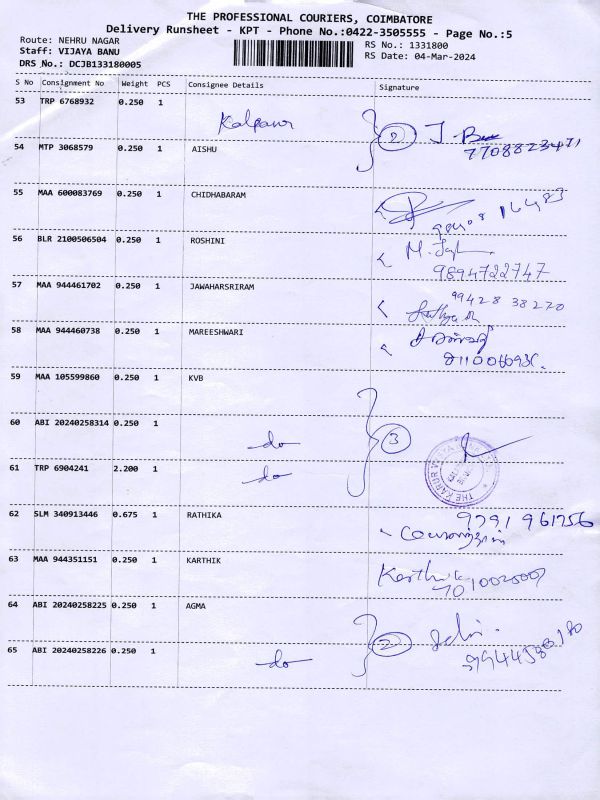 THE PROFESSIONAL COURIERS, COIMBATORE
Delivery Runsheet - KPT - Phone No.:0422-3505555 - Page No.:5
Route: NEHRU NAGAR
RS No.: 1331800
Staff: VIJAYA BANU
RS Date: 04-Mar-2024
DRS No.: DCJB133180005
S No Consignment No Weight PCS Consignee Details Signature
53 TRP 6768932 0.250 1
54 MTP 3068579 0.250 1 AISHU
55 MAA 600083769 0.250 1 CHIDHABARAM
56 BLR 2100506504 0.250 1 ROSHINI
9894722747
57 MAA 944461702 0.250 1 JAWAHARSRIRAM
99428 38270
58 MAA 944460738 0.250 1 MAREESHWARI
59 MAA 105599860 0.250 1 KVB
60 ABI 20240258314 0.250 1
do
3
61 TRP 6904241 2.200 1
do
THE KARUR VYSYA
62 SLM 340913446 0.675 1 RATHIKA
9791 961756
63 MAA 944351151 0.250 1 KARTHIK
Karthik
64 ABI 20240258225 0.250 1 AGMA
2
65 ABI 20240258226 0.250 1
do